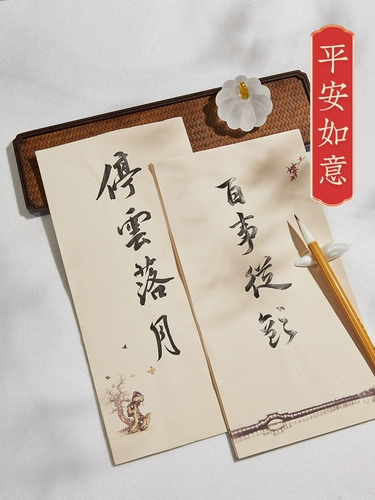 平安如意
停雲落月
百事從